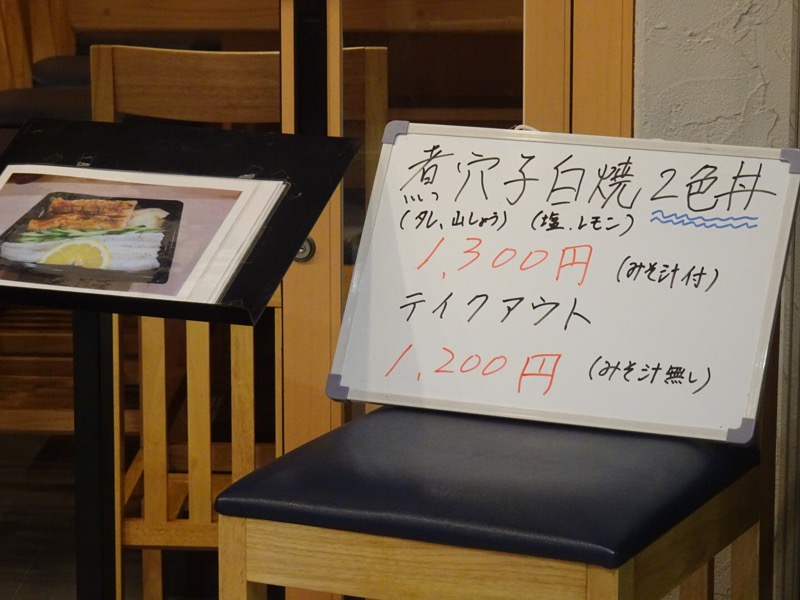 煮穴子白焼2色丼
(タレ、山しょう) (塩.レモン)
1,300円 (みそ汁付)
テイクアウト
1,200円 (みそ汁無し)